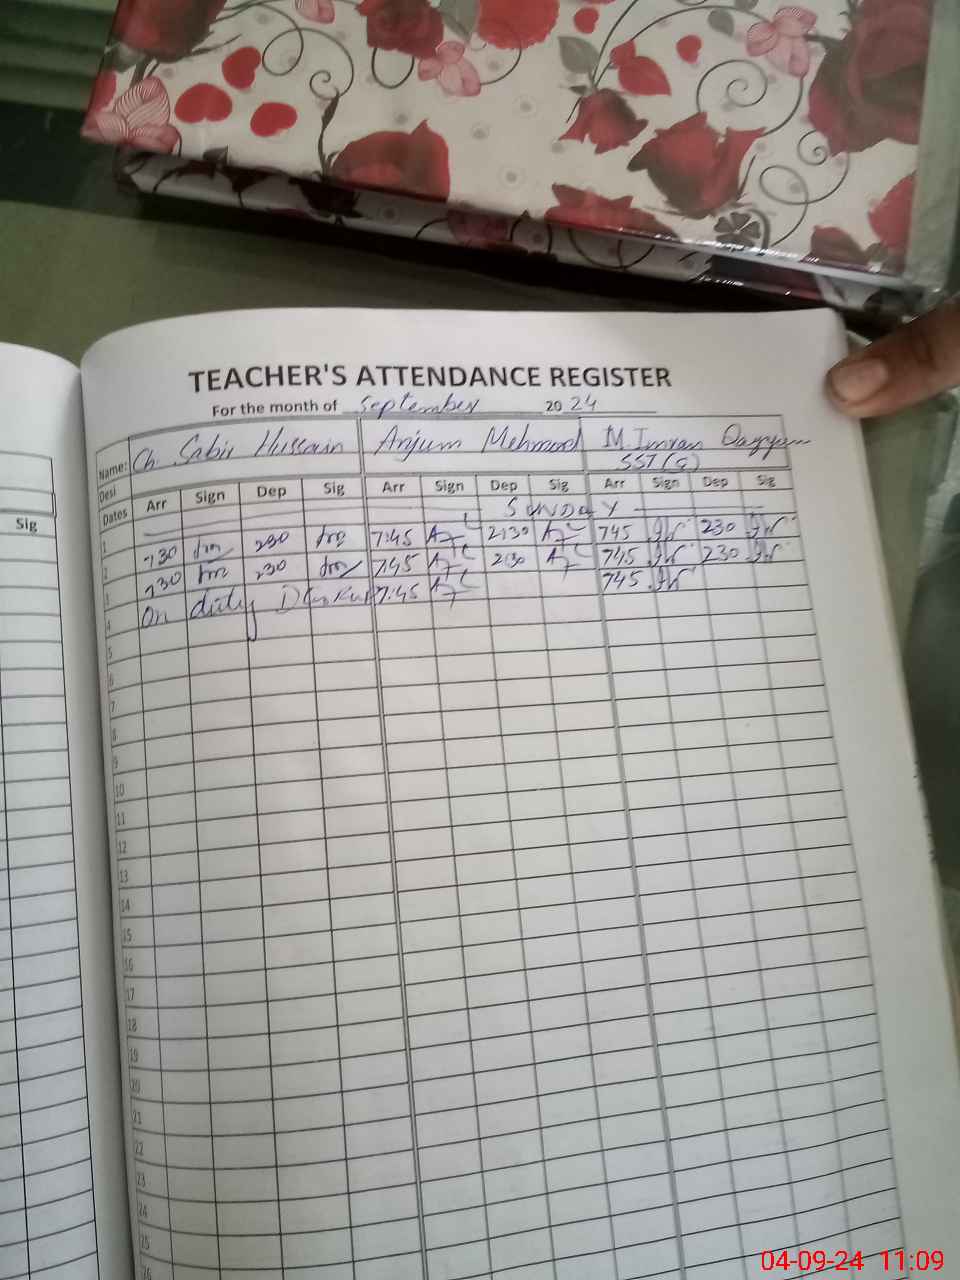 TEACHER'S ATTENDANCE REGISTER
For the month of September 2024
Name: Ch. Sabir Hussain Anjum Mehmood M. Imran Qayyum
Desi SST (G)
Sig
Dates Arr Sign Dep Sig Arr Sign Dep Sig Arr Sign Dep Sig
1 SUNDAY
2 730 230 7:45 2:30 745 230
3 730 230 7:45 2:30 745 230
4 On duty 7:45 745
5
6
7
8
9
10
11
12
13
14
15
16
17
18
19
20
21
22
23
24
25
26
04-09-24 11:09